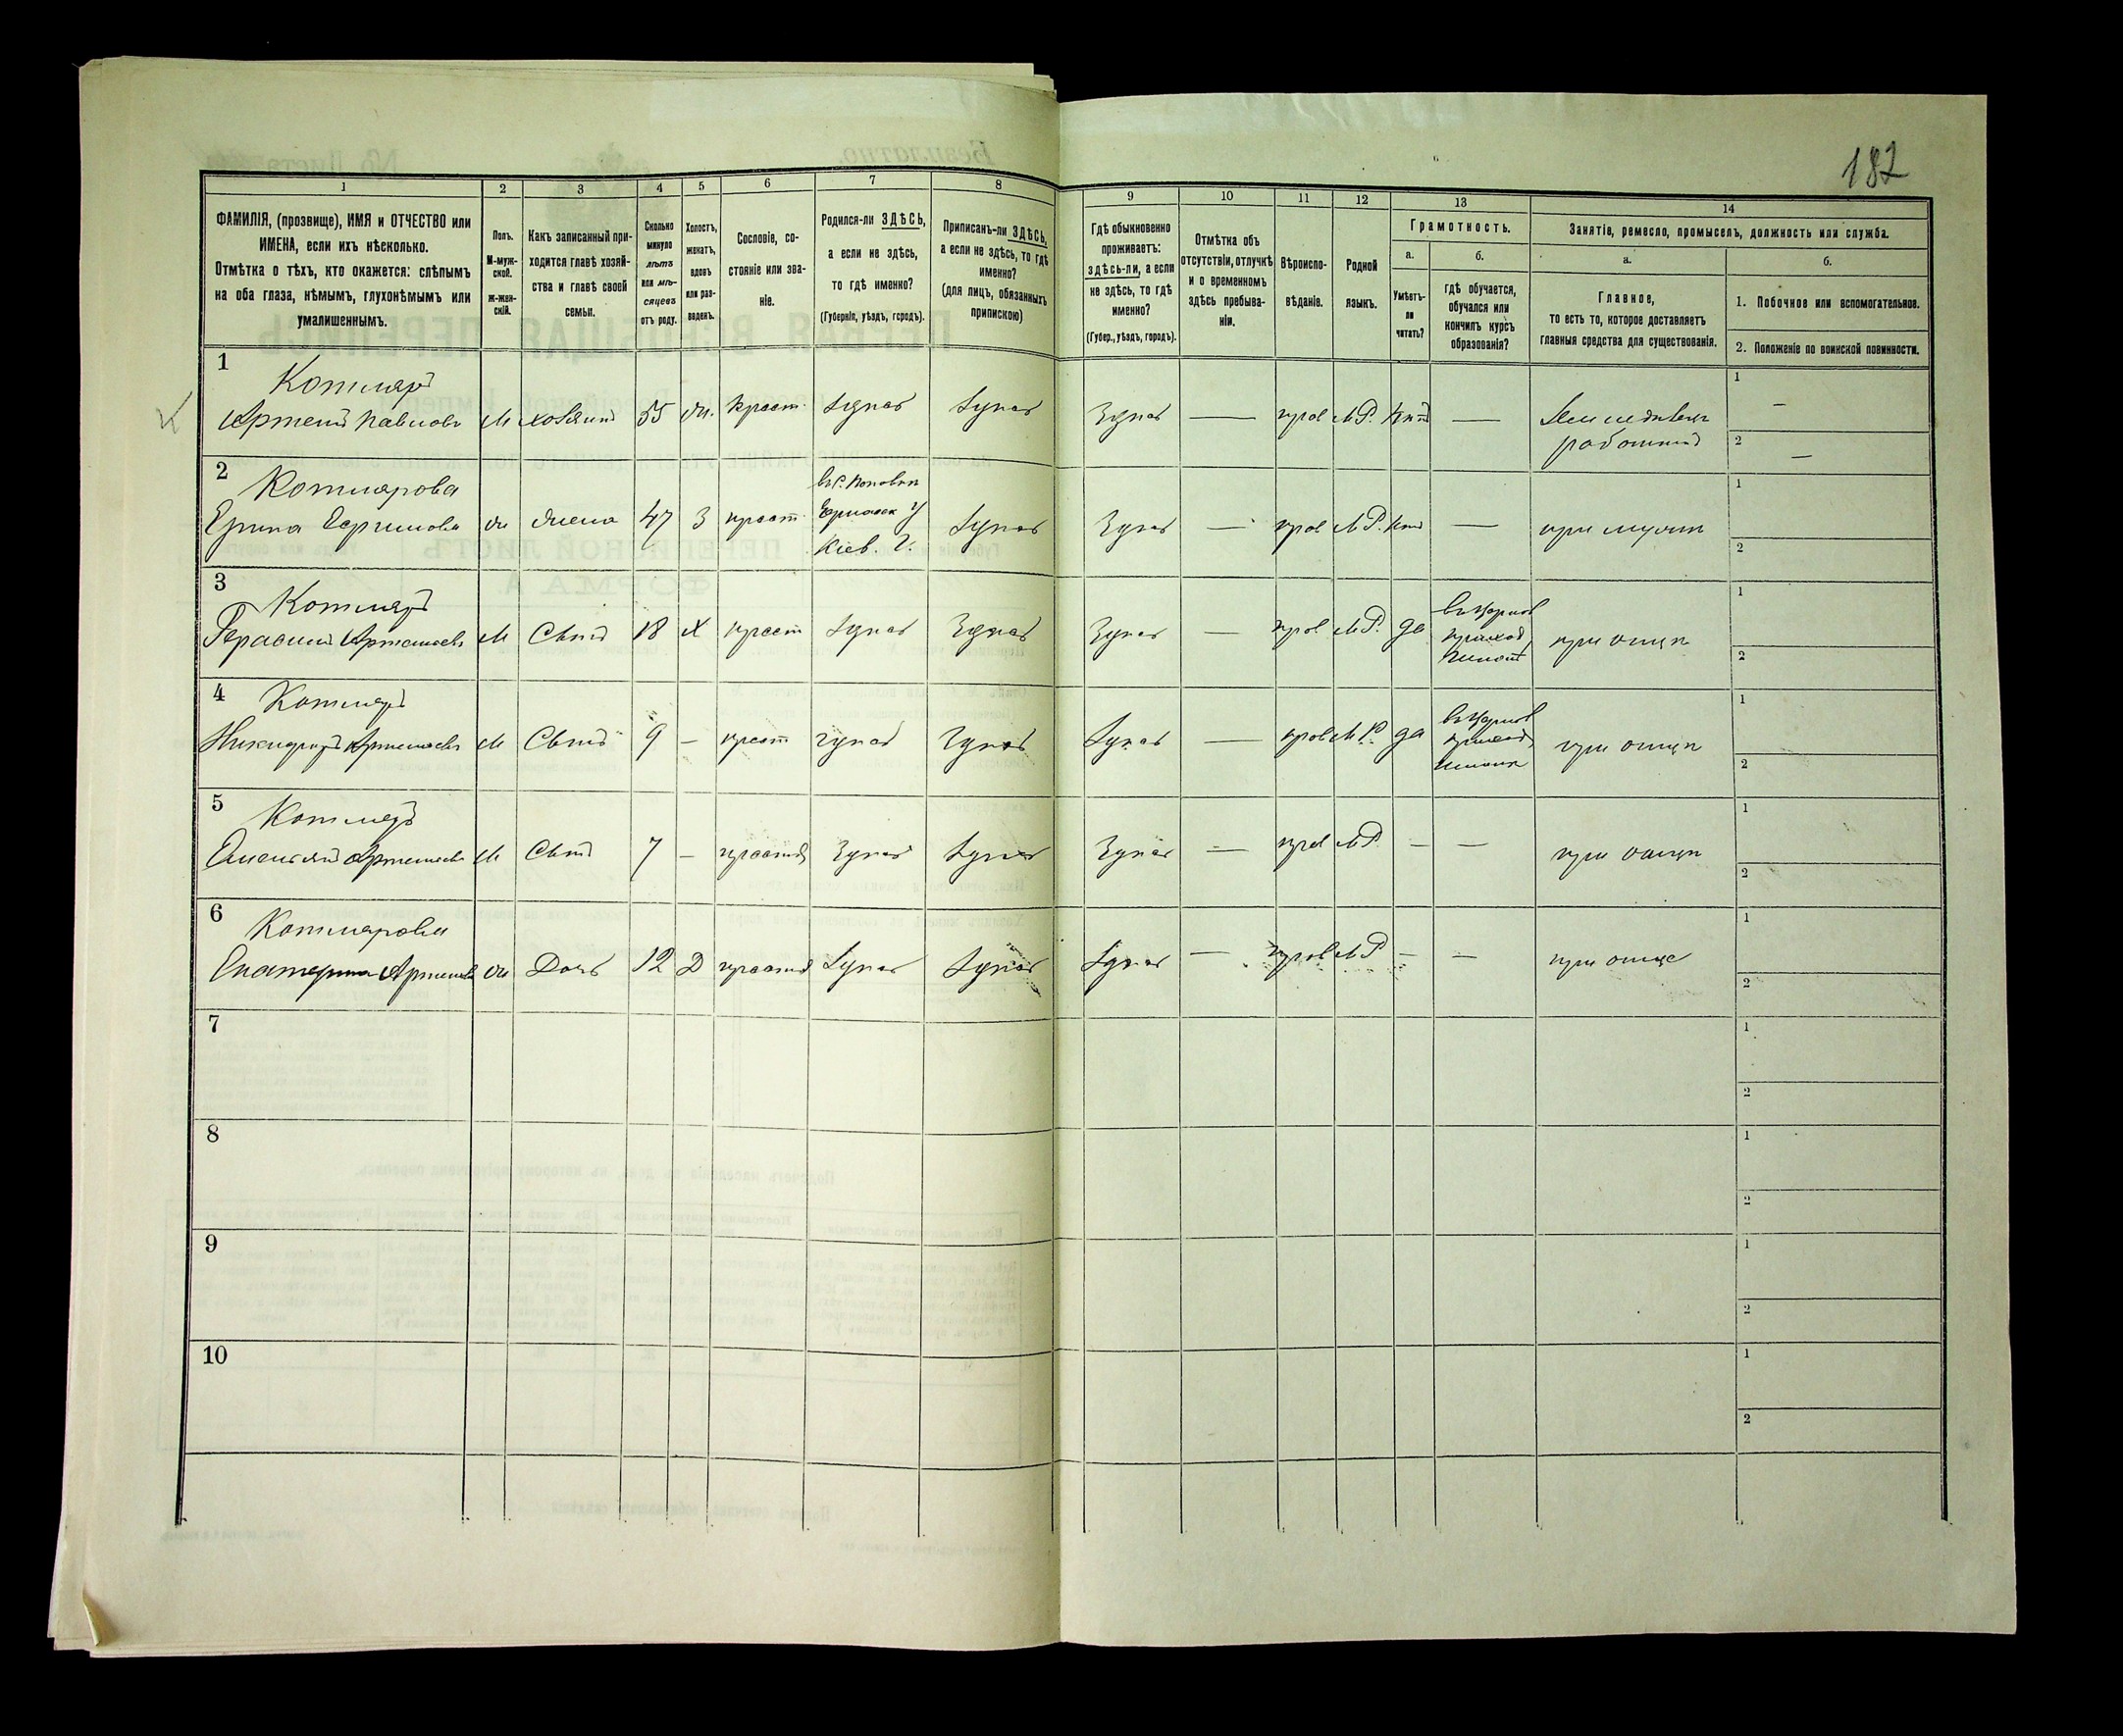 182
1 2 3 4 5 6 7 8 9 10 11 12 13 14
ФАМИЛІЯ, (прозвище), ИМЯ и ОТЧЕСТВО или
ИМЕНА, если ихъ нѣсколько.
Отмѣтка о тѣхъ, кто окажется: слѣпымъ
на оба глаза, нѣмымъ, глухонѣмымъ или
умалишеннымъ.
Полъ.
М-муж-
ской.
ж-жен-
скій.
Какъ записанный при-
ходится главѣ хозяй-
ства и главѣ своей
семьи.
Сколько
минуло
лѣтъ
или мѣ-
сяцевъ
отъ роду.
Холостъ,
женатъ,
вдовъ
или раз-
веденъ.
Сословіе, со-
стояніе или зва-
ніе.
Родился-ли ЗДѢСЬ,
а если не здѣсь,
то гдѣ именно?
(Губернія, уѣздъ, городъ).
Приписанъ-ли ЗДѢСЬ,
а если не здѣсь, то гдѣ
именно?
(для лицъ, обязанныхъ
припискою)
Гдѣ обыкновенно
проживаетъ:
здѣсь-ли, а если
не здѣсь, то гдѣ
именно?
(Губер., уѣздъ, городъ).
Отмѣтка объ
отсутствіи, отлучкѣ
и о временномъ
здѣсь пребыва-
ніи.
Вѣроиспо-
вѣданіе.
Родной
языкъ.
Грамотность.
а.
Умѣетъ-
ли
читать?
б.
гдѣ обучается,
обучался или
кончилъ курсъ
образованія?
Занятіе, ремесло, промыселъ, должность или служба.
а.
Главное,
то есть то, которое доставляетъ
главныя средства для существованія.
б.
1. Побочное или вспомогательное.
2. Положеніе по воинской повинности.
1
Котляръ
Артемій Павловъ М хозяинъ 55 ж. крест. Здѣсь Здѣсь Здѣсь — прав М.Р. нѣтъ — Земледѣлецъ
работникъ
1 —
2 —
2
Котлярова
Ефимова ж жена 47 З крест Кіев. Г. Здѣсь Здѣсь — прав М.Р. нѣтъ — при мужѣ
1
2
3
Котляръ
Герасимъ Артемьевъ М Сынъ 18 Х крест Здѣсь Здѣсь Здѣсь — прав М.Р. да при отцѣ
1
2
4
Котляръ
Никифоръ Артемьевъ М Сынъ 9 — крест здѣсь Здѣсь Здѣсь — прав М.Р. да при отцѣ
1
2
5
Котляръ
Артемьевъ М Сынъ 7 — Здѣсь Здѣсь Здѣсь — прав М.Р — — при отцѣ
1
2
6
Котлярова
Екатерина Артемьева ж Дочь 12 Д Здѣсь Здѣсь Здѣсь — прав М.Р — — при отцѣ
1
2
7
1
2
8
1
2
9
1
2
10
1
2